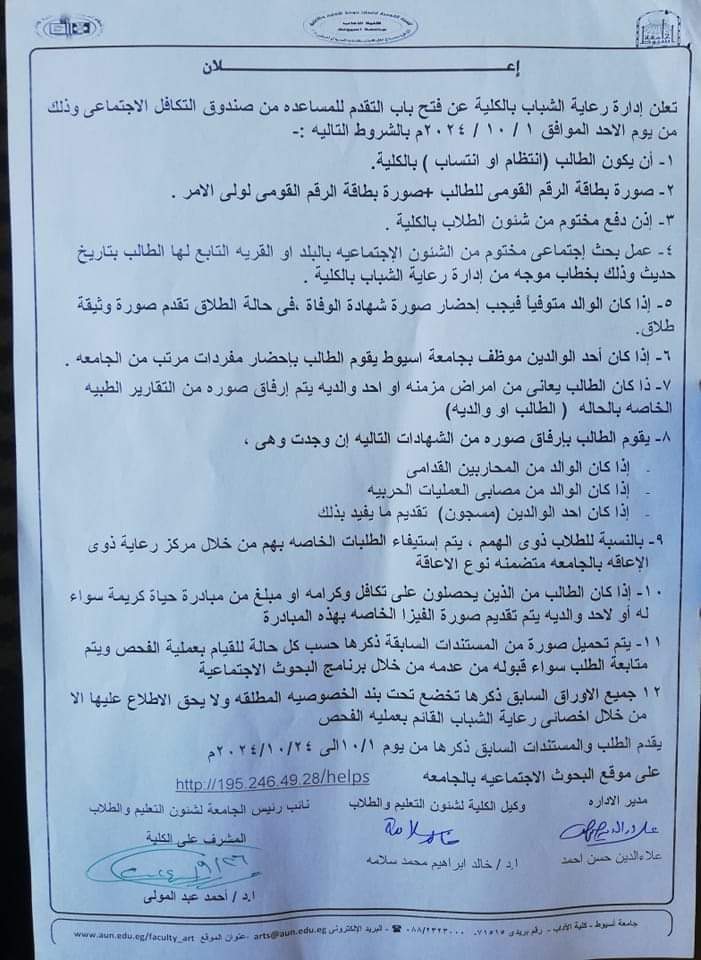 إعـــــلان
تعلن إدارة رعاية الشباب بالكلية عن فتح باب التقدم للمساعده من صندوق التكافل الاجتماعى وذلك
من يوم الاحد الموافق ١ / ١٠ / ٢٠٢٤م بالشروط التاليه :-
١- أن يكون الطالب (انتظام او انتساب ) بالكلية.
٢- صورة بطاقة الرقم القومى للطالب +صورة بطاقة الرقم القومى لولى الامر .
٣- إذن دفع مختوم من شئون الطلاب بالكلية .
٤- عمل بحث إجتماعى مختوم من الشئون الإجتماعيه بالبلد او القريه التابع لها الطالب بتاريخ
حديث وذلك بخطاب موجه من إدارة رعاية الشباب بالكلية .
٥- إذا كان الوالد متوفياً فيجب إحضار صورة شهادة الوفاة ،فى حالة الطلاق تقدم صورة وثيقة
طلاق.
٦- إذا كان أحد الوالدين موظف بجامعة اسيوط يقوم الطالب بإحضار مفردات مرتب من الجامعه .
٧- ذا كان الطالب يعانى من امراض مزمنه او احد والديه يتم إرفاق صوره من التقارير الطبيه
الخاصه بالحاله ( الطالب او والديه)
٨- يقوم الطالب بإرفاق صوره من الشهادات التاليه إن وجدت وهى ،
- إذا كان الوالد من المحاربين القدامى
- إذا كان الوالد من مصابى العمليات الحربيه
- إذا كان احد الوالدين (مسجون) تقديم ما يفيد بذلك
٩- بالنسبة للطلاب ذوى الهمم ، يتم إستيفاء الطلبات الخاصه بهم من خلال مركز رعاية ذوى
الإعاقه بالجامعه متضمنه نوع الاعاقة
١٠- إذا كان الطالب من الذين يحصلون على تكافل وكرامه او مبلغ من مبادرة حياة كريمة سواء
له أو لاحد والديه يتم تقديم صورة الفيزا الخاصه بهذه المبادرة
١١- يتم تحميل صورة من المستندات السابقة ذكرها حسب كل حالة للقيام بعملية الفحص ويتم
متابعة الطلب سواء قبوله من عدمه من خلال برنامج البحوث الاجتماعية
١٢ جميع الاوراق السابق ذكرها تخضع تحت بند الخصوصيه المطلقه ولا يحق الاطلاع عليها الا
من خلال اخصائى رعاية الشباب القائم بعمليه الفحص
يقدم الطلب والمستندات السابق ذكرها من يوم ١٠/١الى ٢٠٢٤/١٠/٢٤م
على موقع البحوث الاجتماعيه بالجامعه http://195.246.49.28/helps
مدير الاداره وكيل الكلية لشئون التعليم والطلاب نائب رئيس الجامعة لشئون التعليم والطلاب
المشرف على الكلية
علاءالدين حسن احمد ا.د / خالد ابراهيم محمد سلامه
ا.د / أحمد عبد المولى
جامعة أسيوط - كلية الآداب - رقم بريدى ٧١٥١٥- ☎ ٠٨٨/٢٣٢٣٠٠٠ - البريد الإلكترونى arts@aun.edu.eg -عنوان الموقع www.aun.edu.eg/faculty_art